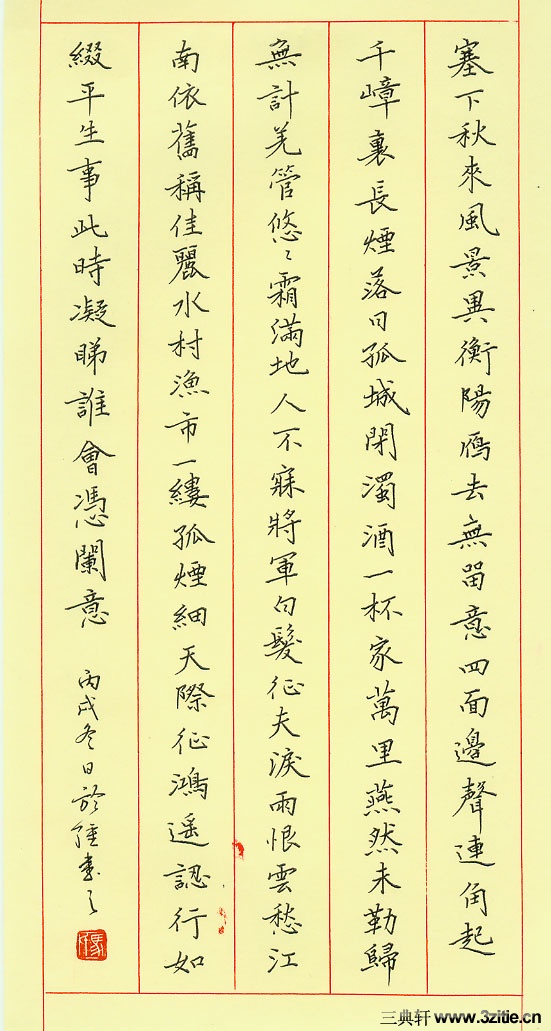 塞下秋來風景異衡陽鴈去無留意四面邊聲連角起
千嶂裏長煙落日孤城閉濁酒一杯家萬里燕然未勒歸
無計羌管悠〻霜滿地人不寐將軍白髮征夫淚雨恨雲愁江
南依舊稱佳麗水村漁市一縷孤煙細天際征鴻遥認行如
綴平生事此時凝睇誰會憑闌意 丙戌冬日於
三典轩 www.3zitie.cn